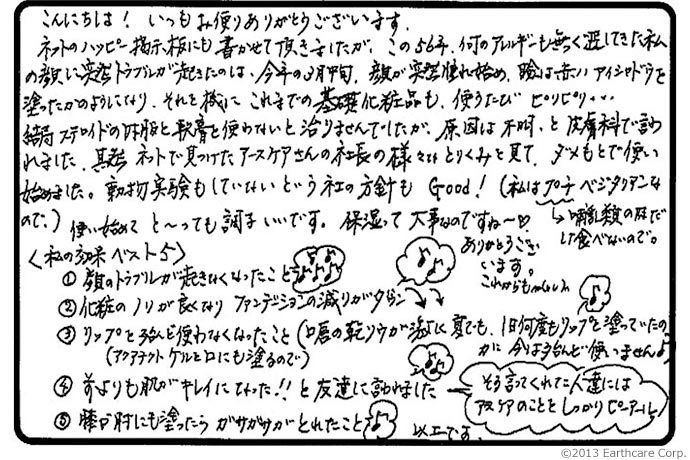 こんにちは！ いつもお便りありがとうございます。
ネットのハッピー掲示板にも書かせて頂きましたが、この56年、何のアレルギーも無く過してきた私
の顔に突然トラブルが起きたのは、今年の3月中旬、顔が突然腫れ始め、瞼は赤いアイシャドウを
塗ったかのようになり、それを機にこれまでの基礎化粧品も、使うたびピリピリ…
結局ステロイドの体脂と軟膏を使わないと治りませんでしたが、原因は不明、と皮膚科で言わ
れました。其後ネットで見つけたアースケアさんの社長の様々なとりくみを見て、ダメもとで使い
始めました。動物実験もしていないという社の方針も Good！（私はプチベジタリアンな
ので。） 使い始めて と〜っても調子いいです。保湿って大事なのですね〜♡
↳哺乳類の肉だけ食べないので。
ありがとうござい
います。
これからも
〈私の効果 ベスト5〉
① 顔のトラブルが起きなくなったこと ♪♪♪♪
② 化粧のノリが良くなり ファンデーションの減りがダウン ♪♪
③ リップを殆んど使わなくなったこと（口唇の乾りウが激しく夏でも、1日何度もリップを塗っていたの
（アクアテクトゲルを口にも塗るので） が今は殆んど使いません♪）
④ 前よりも肌がキレイになった!! と友達に言われました ♪♪
そう言ってくれた人達には
アスケアのことをしっかりピーアール！
⑤ 膝や肘にも塗ったら ガサガサがとれたこと ♪
以上です。
©2013 Earthcare Corp.